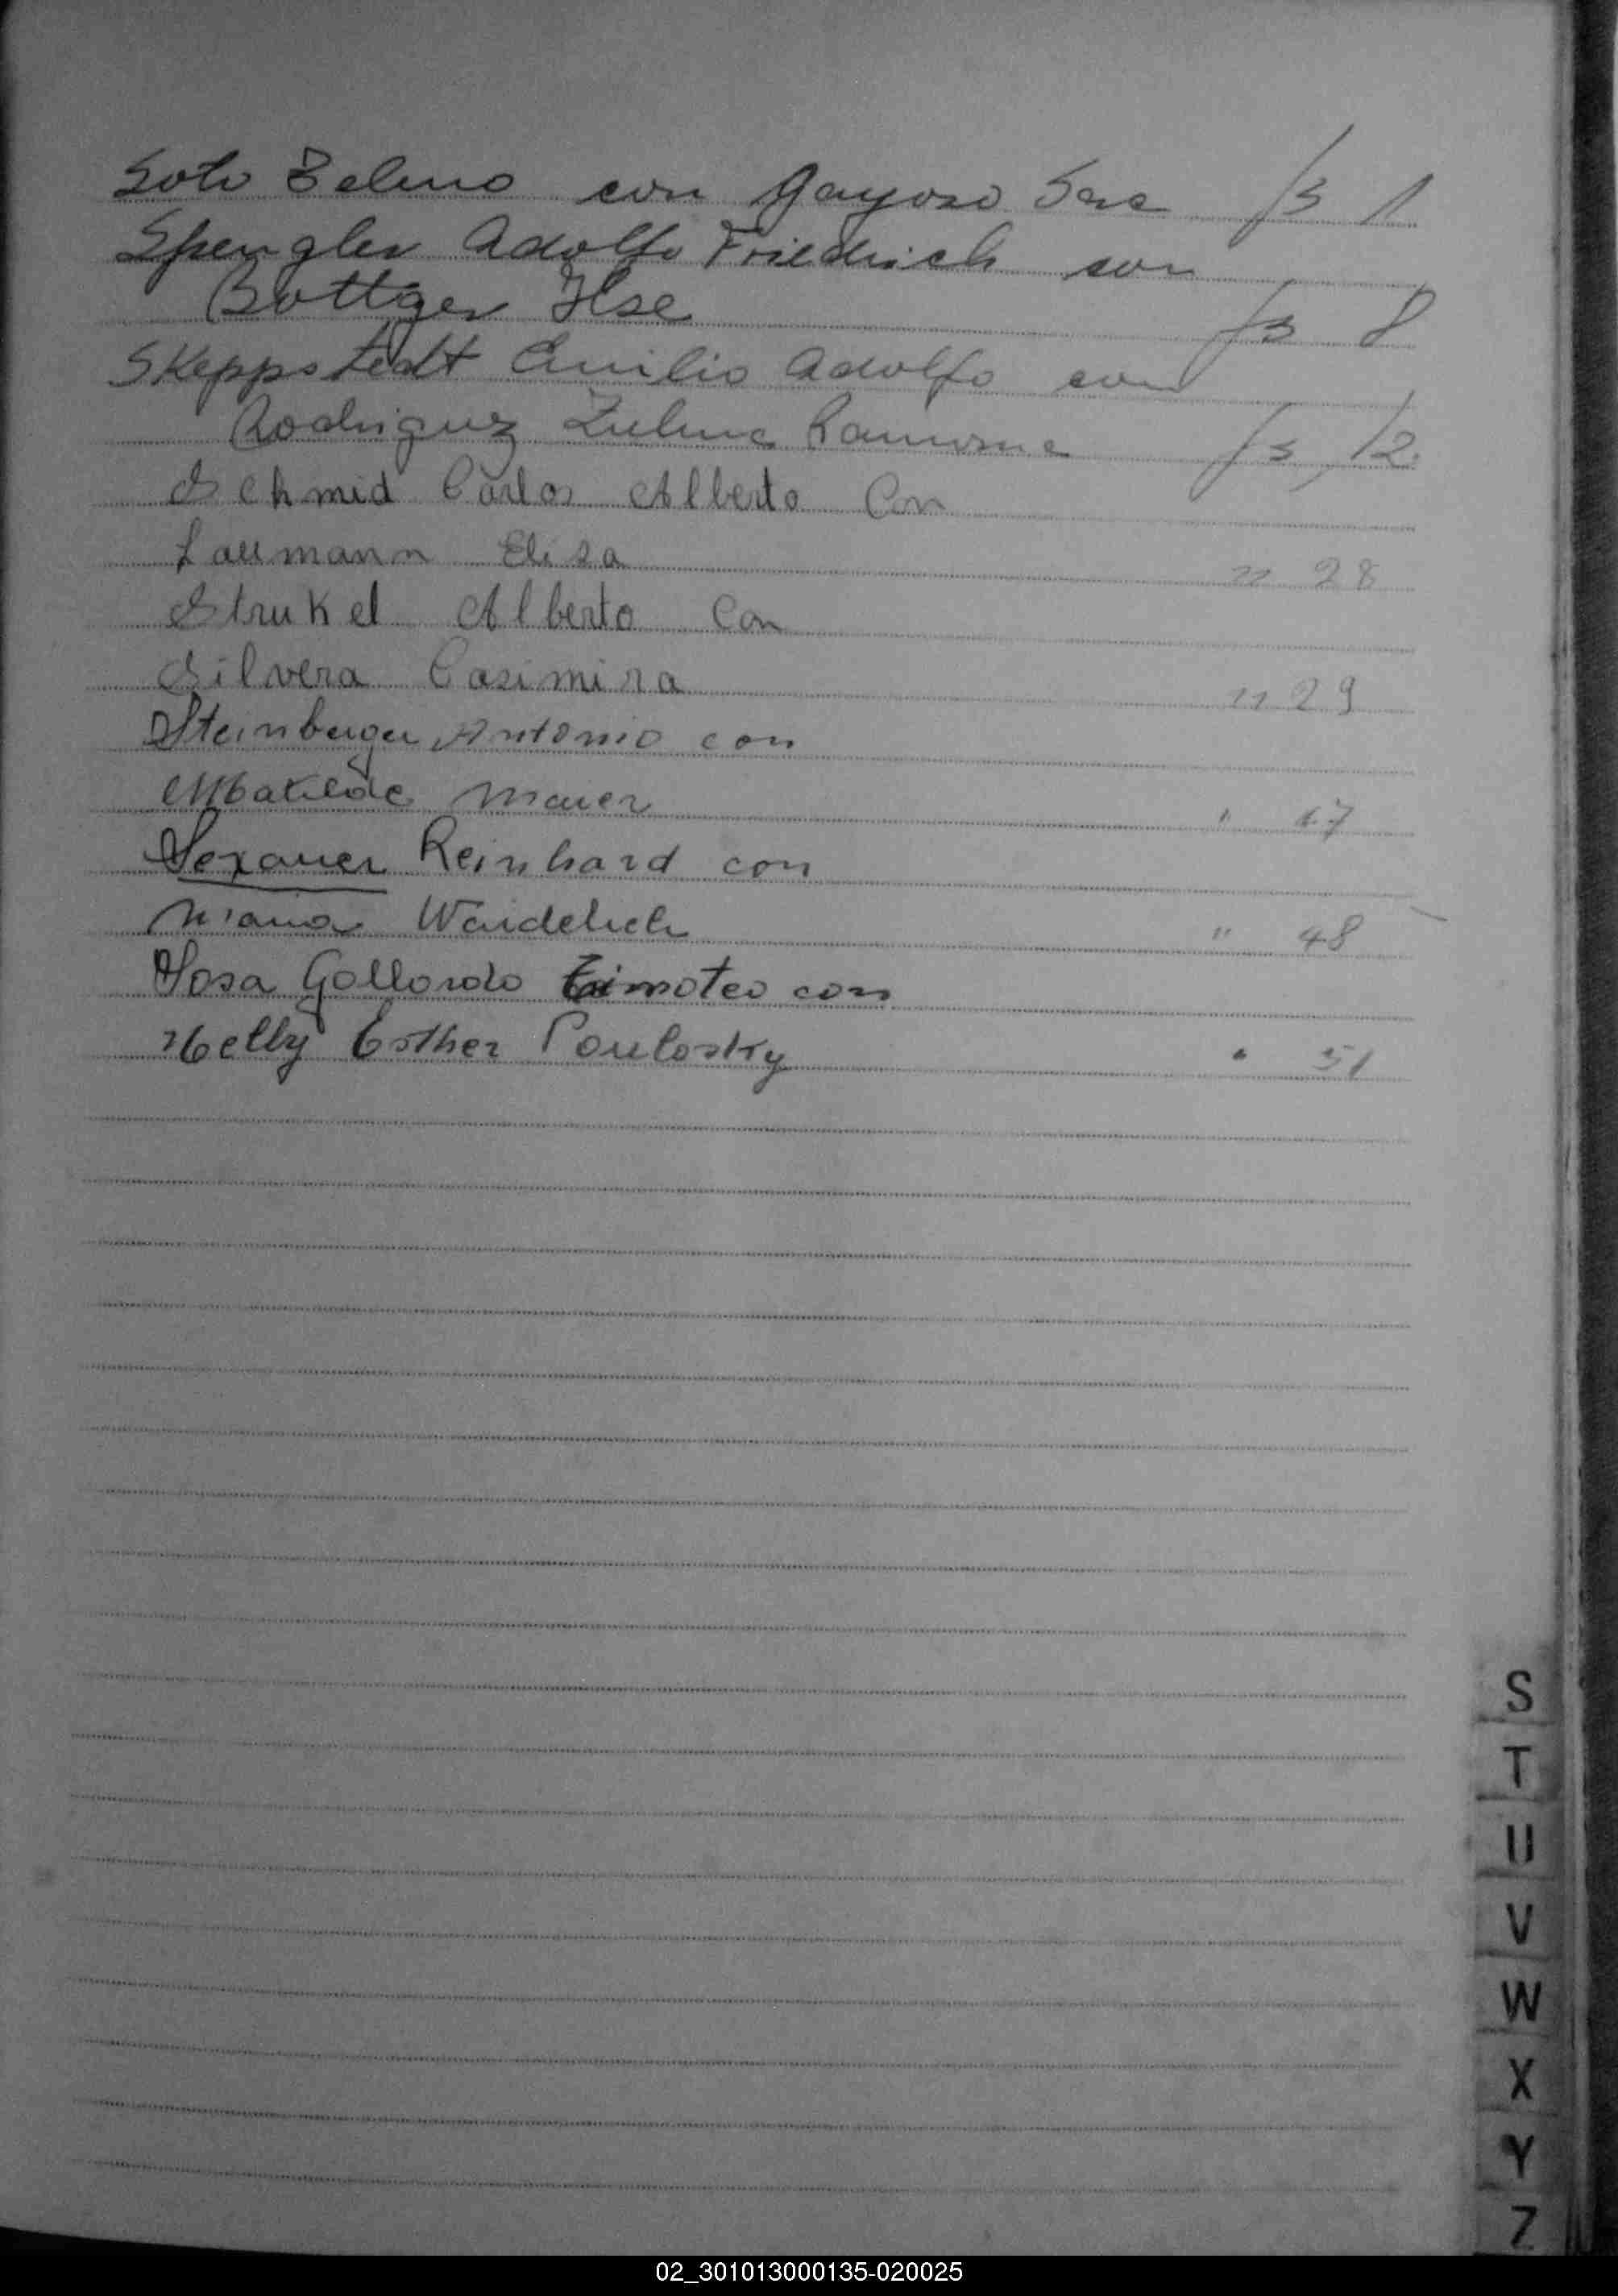 Soto Zelmo con Gayoso Sara fs 1
Spengler Adolfo Friedrich con
Bottger Ilse fs 8
Skeppstedt Emilio Adolfo con
Rodriguez Zulma Ramona fs 12
Schmid Carlos Alberto Con
Laumann Elisa " 28
Strukel Alberto Con
Silvera Casimira " 29
Steinberger Antonio con
Matilde Maier " 47
Sexauer Reinhard con
Maria " 48
Sosa Gollordo Timoteo con
Nelly Esther " 51
S
T
U
V
W
X
Y
Z
02_301013000135-020025